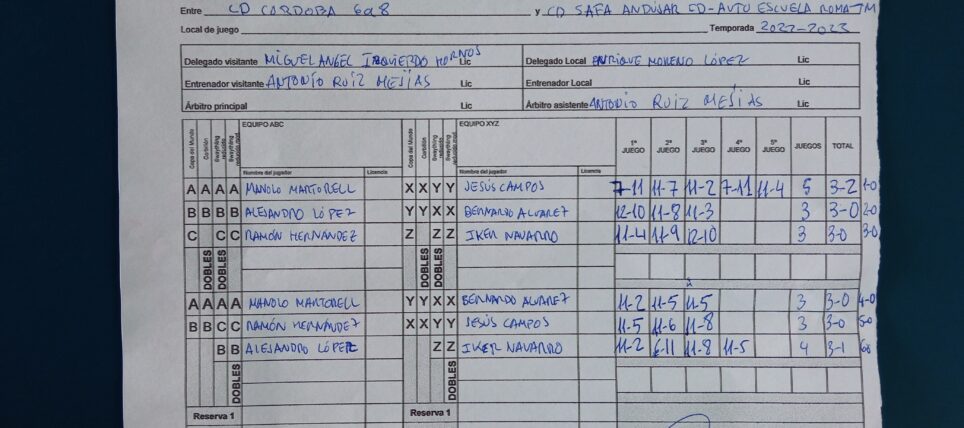 Entre CD CORDOBA 6a8 y CD SAFA ANDUJAR CD-AUTO ESCUELA ROMA JM
Local de juego Temporada 2022-2023
Delegado visitante MIGUEL ANGEL IZQUIERDO HORNOS Lic Delegado Local ENRIQUE MORENO LÓPEZ Lic
Entrenador visitante ANTONIO RUIZ MESÍAS Lic Entrenador Local Lic
Árbitro principal Lic Árbitro asistente ANTONIO RUIZ MESÍAS Lic
Copa del Mundo Corbillón Swaythling reducido Swaythling EQUIPO ABC Copa del Mundo Corbillón Swaythling reducido Swaythling EQUIPO XYZ 1º JUEGO 2º JUEGO 3º JUEGO 4º JUEGO 5º JUEGO JUEGOS TOTAL
Nombre del jugador Licencia Nombre del jugador Licencia
A A A A MANOLO MARTORELL X X Y Y JESÚS CAMPOS 7-11 11-7 11-2 7-11 11-4 5 3-2 1-0
B B B B ALEJANDRO LÓPEZ Y Y X X BERNARDO ALVAREZ 12-10 11-8 11-3 3 3-0 2-0
C C C RAMÓN HERNÁNDEZ Z Z Z IKER NAVARRO 11-4 11-9 12-10 3 3-0 3-0
DOBLES DOBLES DOBLES DOBLES
A A A A MANOLO MARTORELL Y Y X X BERNARDO ALVAREZ 11-2 11-5 11-5 3 3-0 4-0
B B C C RAMÓN HERNÁNDEZ X X Y Y JESÚS CAMPOS 11-5 11-6 11-8 3 3-0 5-0
B B ALEJANDRO LÓPEZ Z Z IKER NAVARRO 11-2 6-11 11-8 11-5 4 3-1
DOBLES DOBLES
Reserva 1 Reserva 1